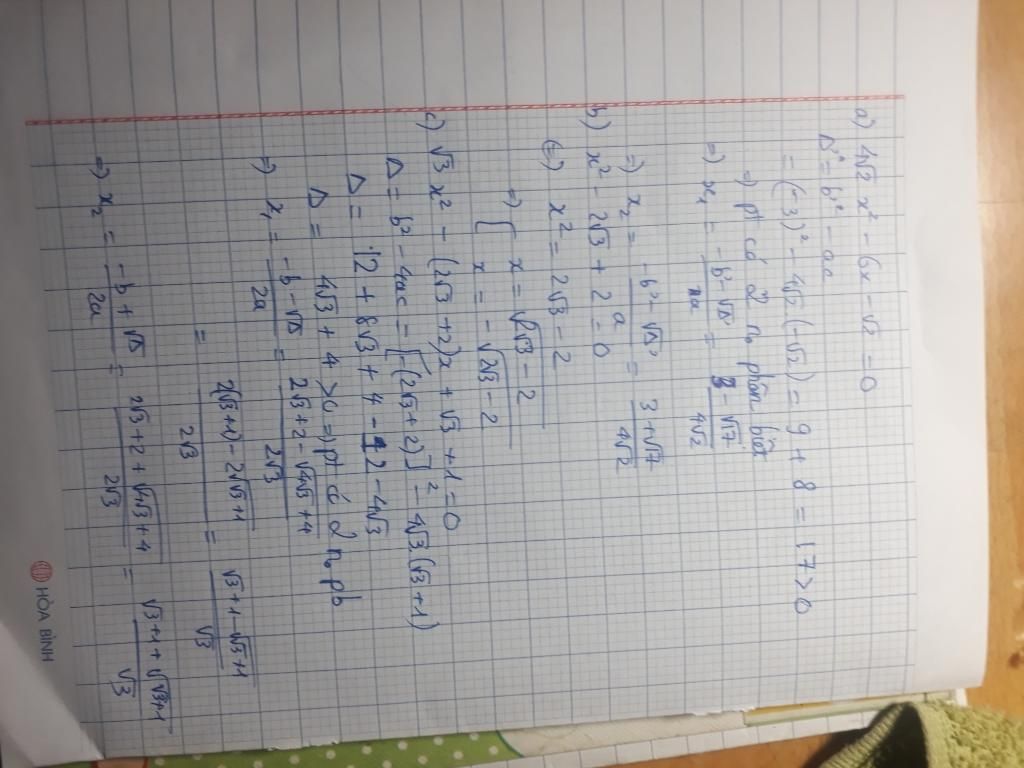 a) 4√2 x² - 6x - √2 = 0
Δ' = b'² - ac
= (-3)² - 4√2.(-√2) = 9 + 8 = 17 > 0
⇒ pt có 2 n₀ phân biệt
⇒ x₁ = (-b' - √Δ')/a = (3 - √17)/(4√2)
⇒ x₂ = (-b' - √Δ')/a = (3 + √17)/(4√2)
b) x² - 2√3 + 2 = 0
(⇔) x² = 2√3 - 2
⇒ [ x = √(2√3 - 2)
x = - √(2√3 - 2)
c) √3 x² - (2√3 + 2)x + √3 + 1 = 0
Δ = b² - 4ac = [-(2√3 + 2)]² - 4√3.(√3 + 1)
Δ = 12 + 8√3 + 4 - 12 - 4√3
Δ = 4√3 + 4 > 0 ⇒ pt có 2 n₀ pb
⇒ x₁ = (-b - √Δ)/(2a) = (2√3 + 2 - √(4√3 + 4))/(2√3)
= (2(√3 + 1) - 2√(√3 + 1))/(2√3) = (√3 + 1 - √(√3 + 1))/√3
⇒ x₂ = (-b + √Δ)/(2a) = (2√3 + 2 + √(4√3 + 4))/(2√3) = (√3 + 1 + √(√3 + 1))/√3
HÒA BÌNH